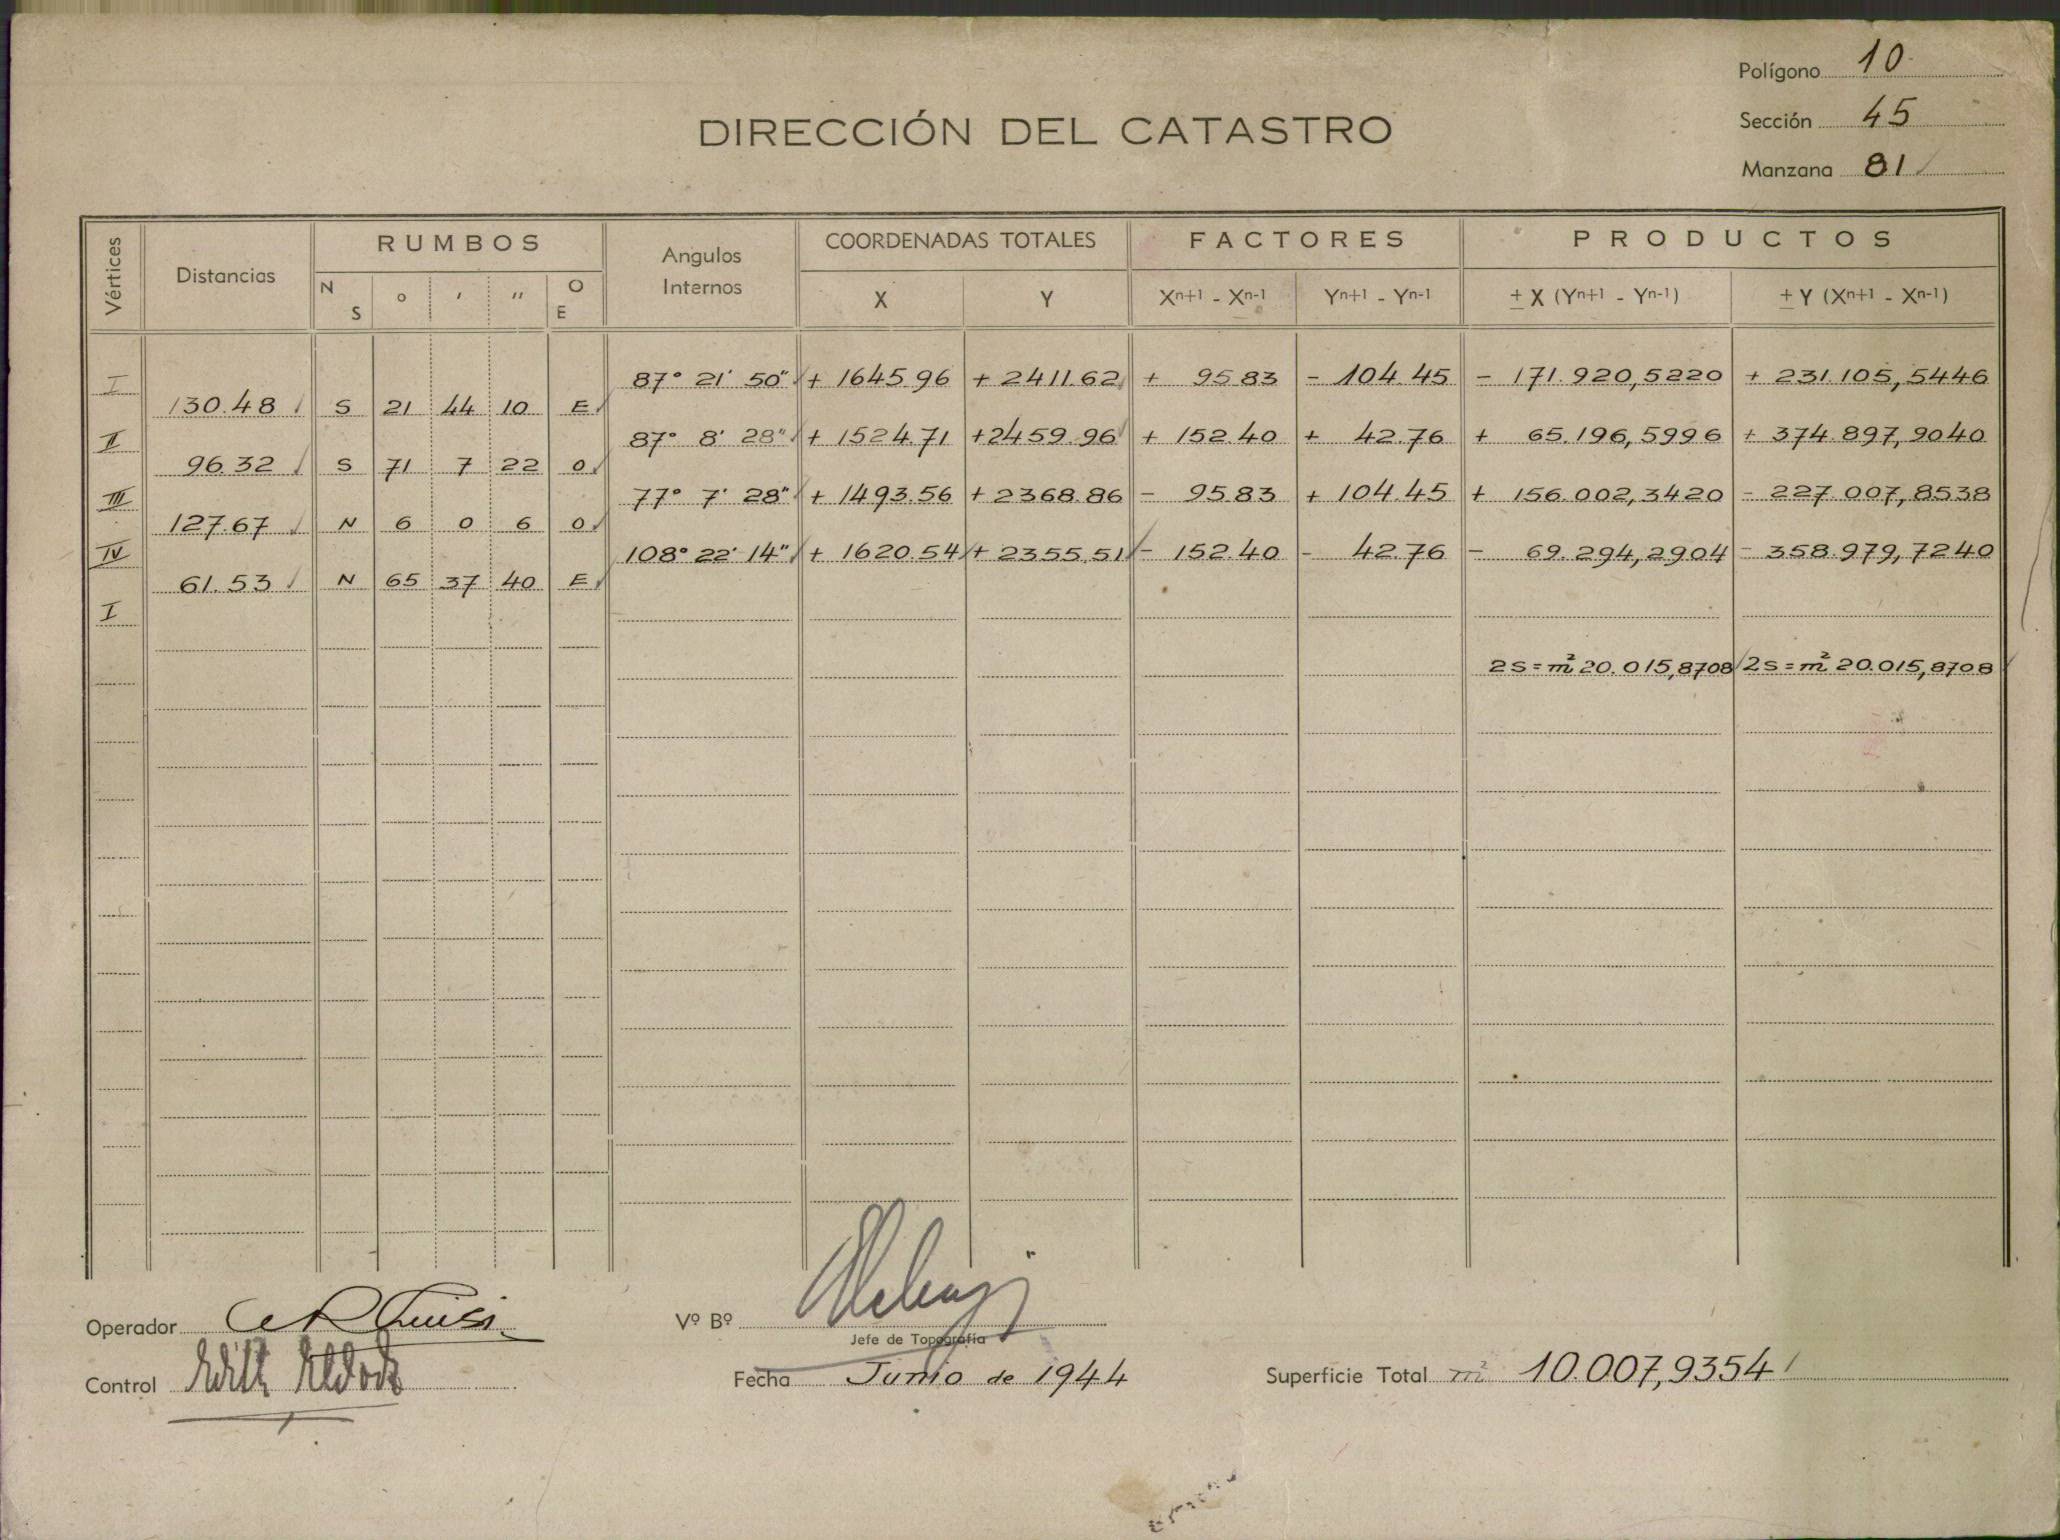 Polígono 10
Sección 45
Manzana 81
DIRECCIÓN DEL CATASTRO
Vértices Distancias RUMBOS Angulos Internos COORDENADAS TOTALES FACTORES PRODUCTOS
N S ° ' " O E X Y Xn+1 - Xn-1 Yn+1 - Yn-1 ± X (Yn+1 - Yn-1) ± Y (Xn+1 - Xn-1)
I 87° 21' 50" + 1645.96 + 2411.62 + 95.83 - 104.45 - 171.920,5220 + 231.105,5446
130.48 S 21 44 10 E
II 87° 8' 28" + 1524.71 + 2459.96 + 152.40 + 42.76 + 65.196,5996 + 374.897,9040
96.32 S 71 7 22 O
III 77° 7' 28" + 1493.56 + 2368.86 - 95.83 + 104.45 + 156.002,3420 - 227.007,8538
127.67 N 6 0 6 O
IV 108° 22' 14" + 1620.54 + 2355.51 - 152.40 - 42.76 - 69.294,2904 - 358.979,7240
61.53 N 65 37 40 E
I
2S = m² 20.015,8708 2S = m² 20.015,8708
Operador
Vº Bº
Jefe de Topografía
Control
Fecha Junio de 1944
Superficie Total m² 10.007,9354